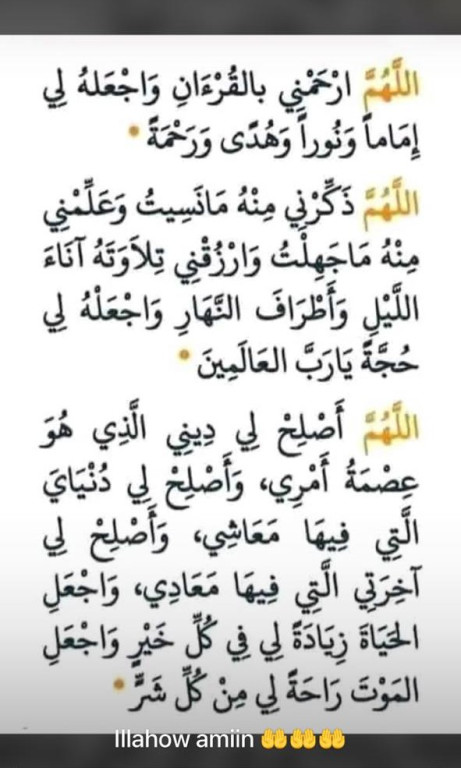 اللَّهُمَّ ارْحَمْنِي بالقُرْءَانِ وَاجْعَلهُ لِي
إِمَاماً وَنُوراً وَهُدًى وَرَحْمَةً •
اللَّهُمَّ ذَكِّرْنِي مِنْهُ مَانَسِيتُ وَعَلِّمْنِي
مِنْهُ مَاجَهِلْتُ وَارْزُقْنِي تِلاَوَتَهُ آنَاءَ
اللَّيْلِ وَأَطْرَافَ النَّهَارِ وَاجْعَلْهُ لِي
حُجَّةً يَارَبَّ العَالَمِينَ •
اللَّهُمَّ أَصْلِحْ لِي دِينِي الَّذِي هُوَ
عِصْمَةُ أَمْرِي، وَأَصْلِحْ لِي دُنْيَايَ
الَّتِي فِيهَا مَعَاشِي، وَأَصْلِحْ لِي
آخِرَتِي الَّتِي فِيهَا مَعَادِي، وَاجْعَلِ
الحَيَاةَ زِيَادَةً لِي فِي كُلِّ خَيْرٍ وَاجْعَلِ
المَوْتَ رَاحَةً لِي مِنْ كُلِّ شَرٍّ •
Illahow amiin 🤲🤲🤲